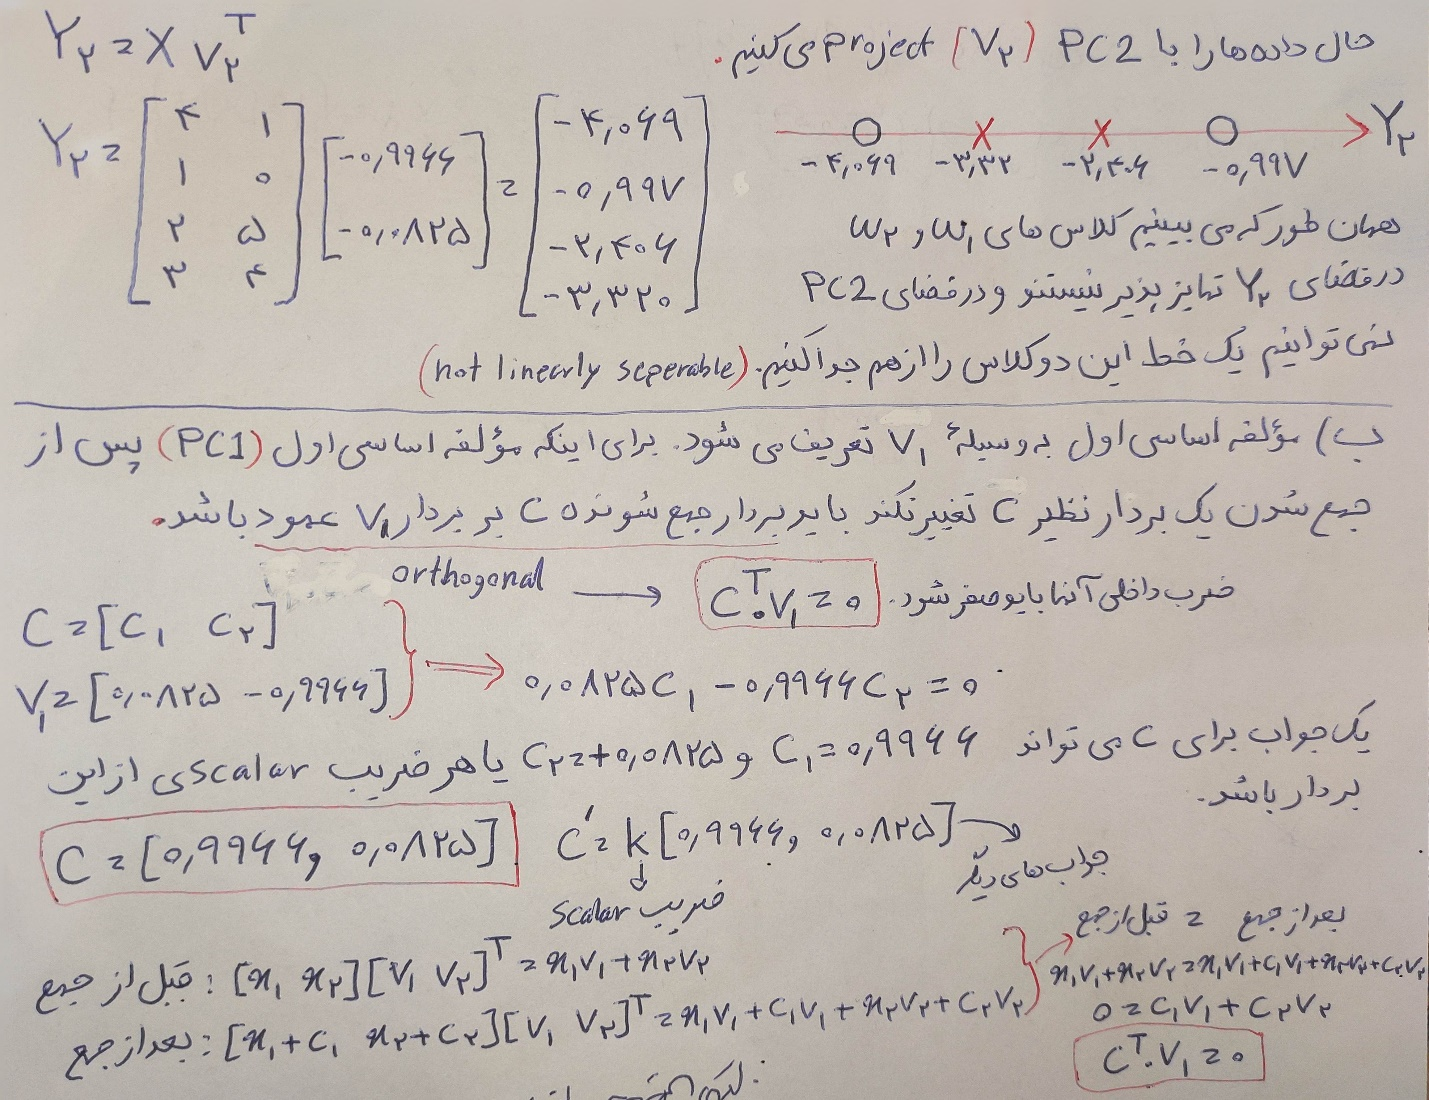 حال داده‌ها را با PC2 (V۲) project می‌کنیم.
Y۲ = X V۲ᵀ
Y۲ = [۴ ۱
۱ ۰
۲ ۵
۳ ۴] [-۰,۹۹۶۶
-۰,۰۸۲۵] = [-۴,۰۶۹
-۰,۹۹۷
-۲,۴۰۶
-۳,۳۲۰]
-۴,۰۶۹ -۳,۳۲ -۲,۴۰۶ -۰,۹۹۷ Y۲
همان طور که می بینیم کلاس های ω۱ و ω۲
در فضای Y۲ تمایز پذیر نیستند و در فضای PC2
نمی توانیم یک خط این دو کلاس را از هم جدا کنیم. (not linearly seperable)
ب) مؤلفه اساسی اول به وسیلهٔ V۱ تعریف می شود. برای اینکه مؤلفه اساسی اول (PC1) پس از
جمع شدن یک بردار نظیر C تغییر نکند باید بردار جمع شونده C بر بردار V۱ عمود باشد.
orthogonal → Cᵀ.V۱ = ۰ ضرب داخلی آنها باید صفر شود.
C = [C۱ C۲]
V۱ = [۰,۰۸۲۵ -۰,۹۹۶۶] ⇒ ۰,۰۸۲۵C۱ - ۰,۹۹۶۶C۲ = ۰
یک جواب برای C می تواند C۱ = ۰,۹۹۶۶ و C۲ = +۰,۰۸۲۵ یا هر ضریب scalarی از این
بردار باشد.
C = [۰,۹۹۶۶, ۰,۰۸۲۵] C′ = k [۰,۹۹۶۶, ۰,۰۸۲۵] →
جواب های دیگر
ضریب scalar
قبل از جمع : [x۱ x۲][V۱ V۲]ᵀ = x۱V۱ + x۲V۲
بعد از جمع : [x۱+C۱ x۲+C۲][V۱ V۲]ᵀ = x۱V۱ + C۱V۱ + x۲V۲ + C۲V۲
بعد از جمع = قبل از جمع
x۱V۱+x۲V۲ = x۱V۱+C۱V۱+x۲V۲+C۲V۲
۰ = C۱V۱ + C۲V۲
Cᵀ.V۱ = ۰